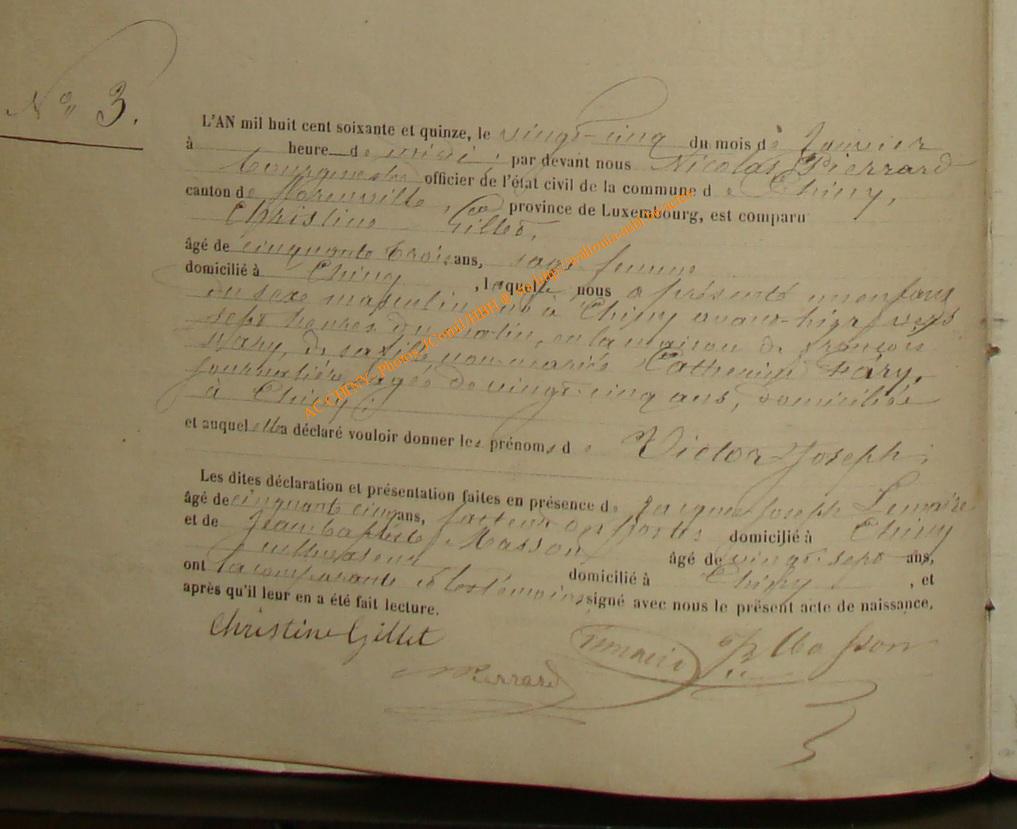 N° 3.
L'AN mil huit cent soixante et quinze, le vingt-cinq du mois de Janvier
à heure de midi, par devant nous Nicolas Pierrard
bourgmestre officier de l'état civil de la commune de Chiny,
canton de Florenville, province de Luxembourg, est comparu
Christine Gillet,
âgé de cinquante trois ans, sage femme
domicilié à Chiny, laquelle nous a présenté un enfant
du sexe masculin, né à Chiny avant-hier, vers
sept heures du matin, en la maison de François
Háry, de sa fille non mariée Catherine Háry,
journalière, agée de vingt-cinq ans, domiciliée
à Chiny;
et auquel elle a déclaré vouloir donner les prénoms de Victor Joseph;
Les dites déclaration et présentation faites en présence de Jacques Joseph Lemaire
âgé de cinquante cinq ans, facteur des postes domicilié à Chiny
et de Jean Baptiste Masson âgé de vingt-sept ans,
cultivateur domicilié à Chiny, et
ont la comparante et les témoins signé avec nous le présent acte de naissance,
après qu'il leur en a été fait lecture.
Christine Gillet Lemaire JB Masson
NPierrard
AC CHINY - Photos